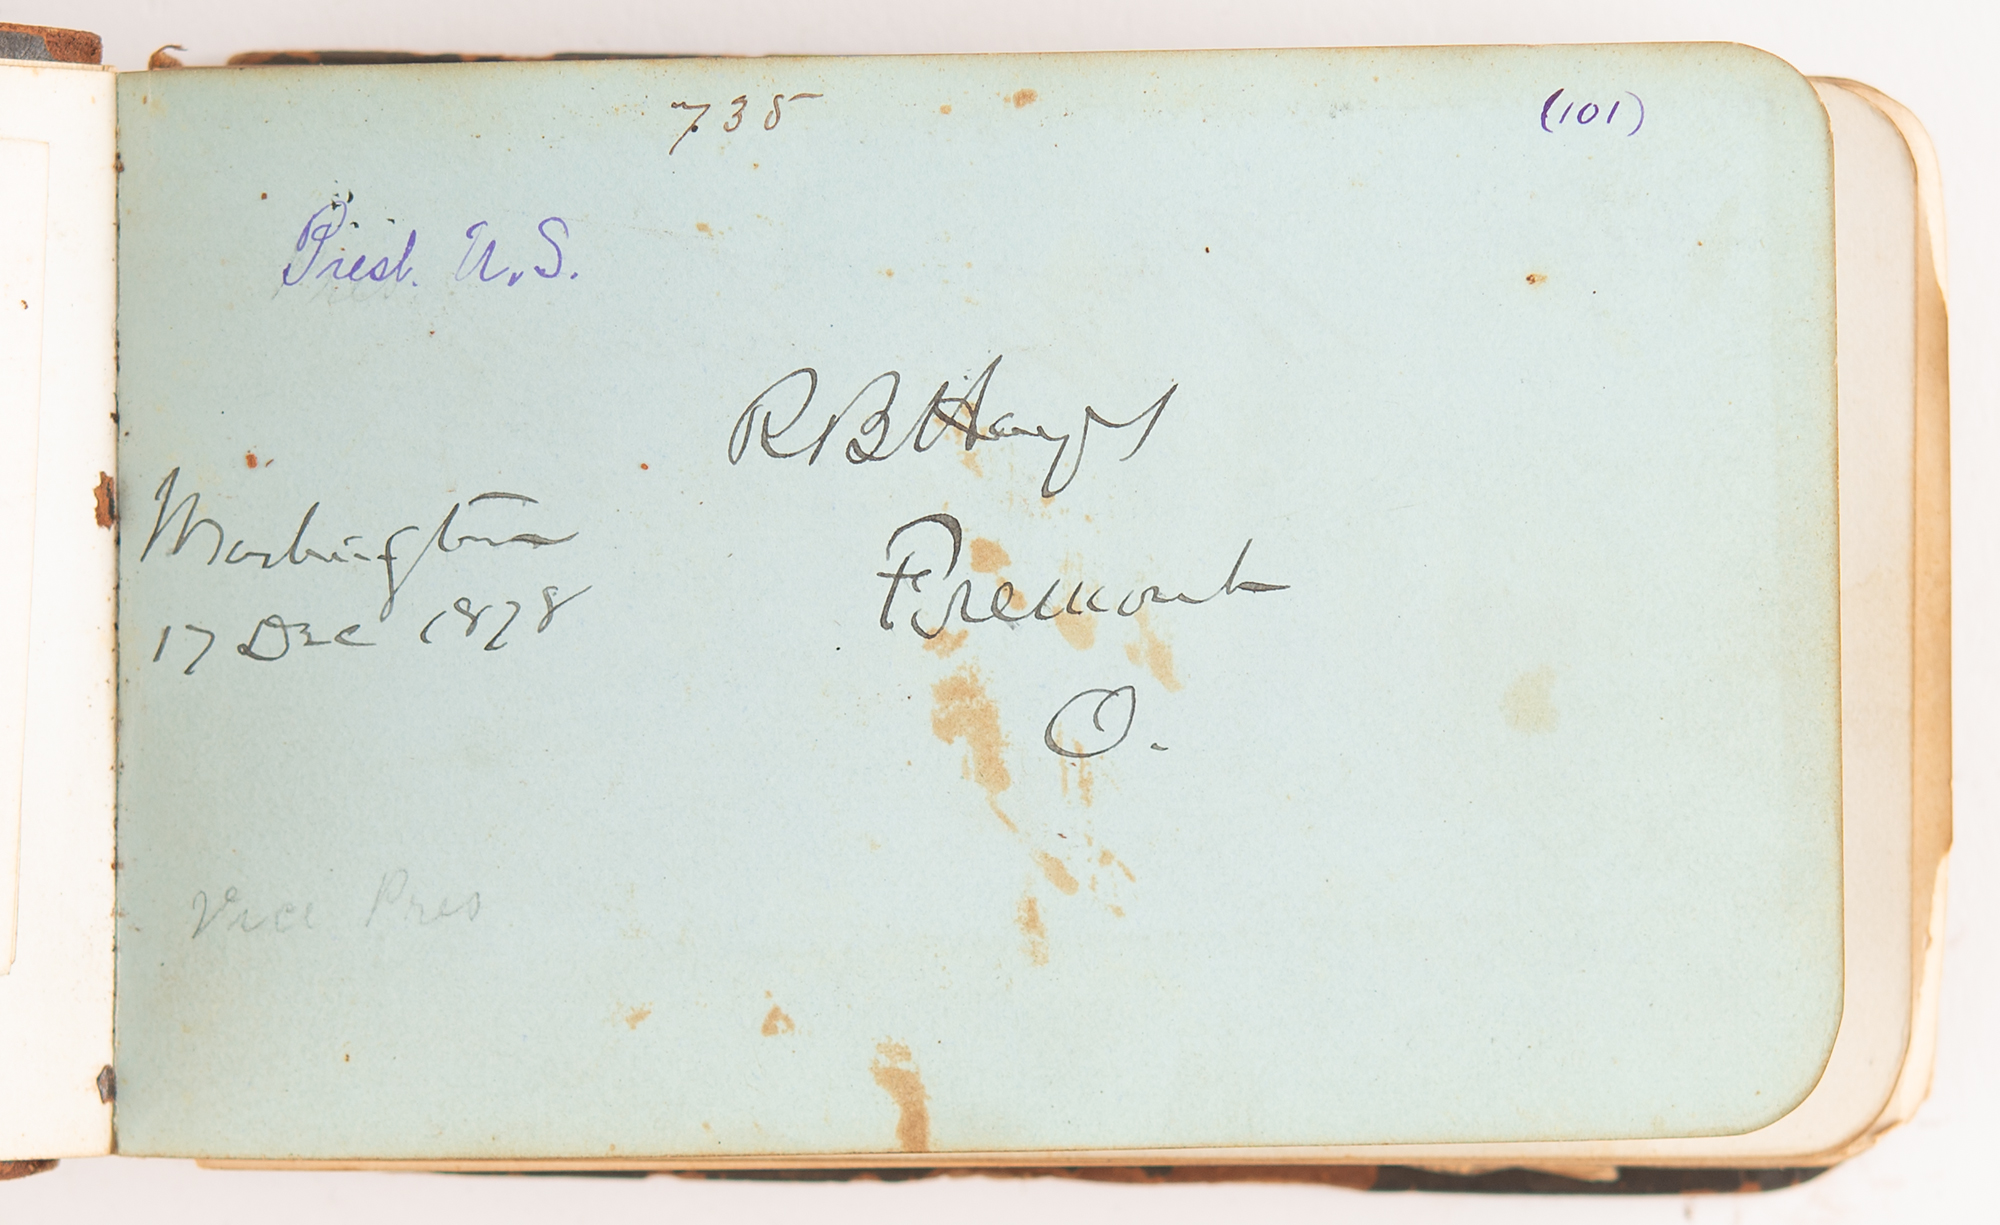 735
(101)
Prest. U.S.
R B Hayes
Washington
17 Dec 1878
Fremont
O.
Vice Pres